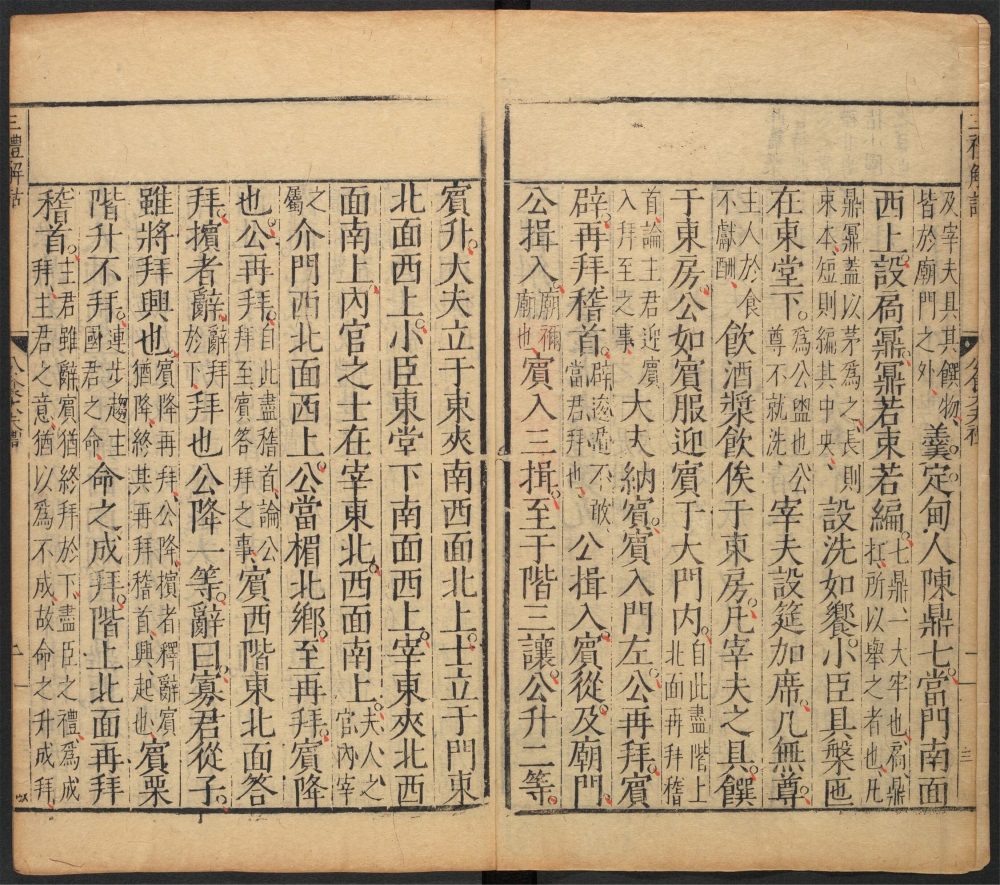 三禮解詁 公食大夫禮 三
及宰夫具其饌物、皆於廟門之外 羹定。甸人陳鼎七。當門南面
西上。設扃鼏。鼏若束若編。七鼎、一大牢也、扃鼎扛、所以舉之者也、凡
鼎鼏蓋以茅爲之、長則束本、短則編其中央、設洗如饗。小臣具槃匜
在東堂下。爲公盥也、公尊不就洗、宰夫設筵加席。几。無尊。
主人於食不獻酬、飲酒漿飲俟于東房。凡宰夫之具。饌
于東房。公如賓服迎賓于大門內。自此盡階上北面再拜稽
首、論主君迎賓入拜至之事、大夫納賓。賓入門左。公再拜。賓
辟。再拜稽首。辟逡遁不敢當君拜也、公揖入。賓從。及廟門。
公揖入。廟、禰廟也、賓入三揖。至于階三讓。公升二等。
賓升。大夫立于東夾南西面北上。士立于門東
北面西上。小臣東堂下南面西上。宰東夾北西
面南上。內官之士在宰東北。西面南上。夫人之官、內宰
之屬、介門西北面西上。公當楣北鄉。至再拜。賓降
也。公再拜。自此盡稽首、論公拜至賓答拜之事、賓西階東北面答
拜。擯者辭。辭拜於下、拜也公降一等。辭曰。寡君從子。
雖將拜興也。賓降再拜、公降、擯者釋辭、賓猶降、終其再拜稽首、興、起也、賓栗
階升不拜。連步趨主國君之命、命之。成拜。階上北面再拜
稽首。主君雖辭、賓猶終拜於下、盡臣之禮、爲成拜、主君之意、猶以爲不成、故命之升成拜、
三禮解詁